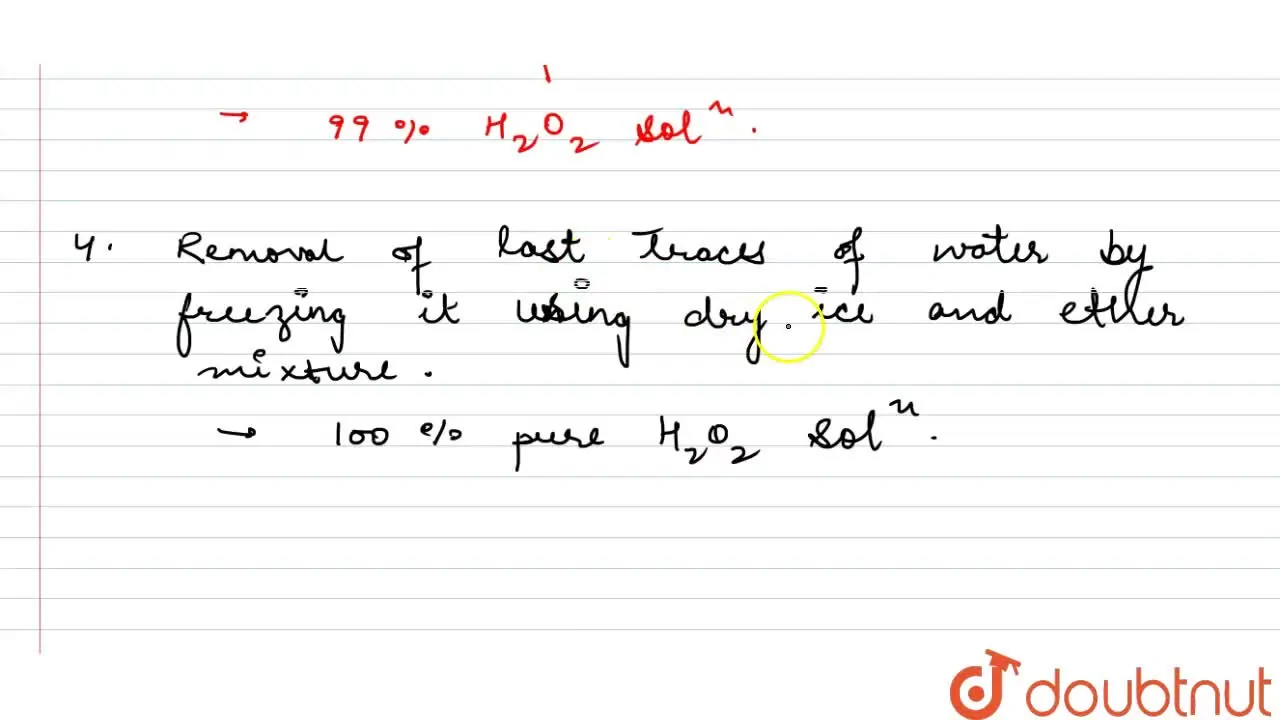 → 99 % H₂O₂ solⁿ.
4. Removal of last traces of water by
freezing it using dry ice and ether
mixture.
→ 100 % pure H₂O₂ solⁿ.
doubtnut